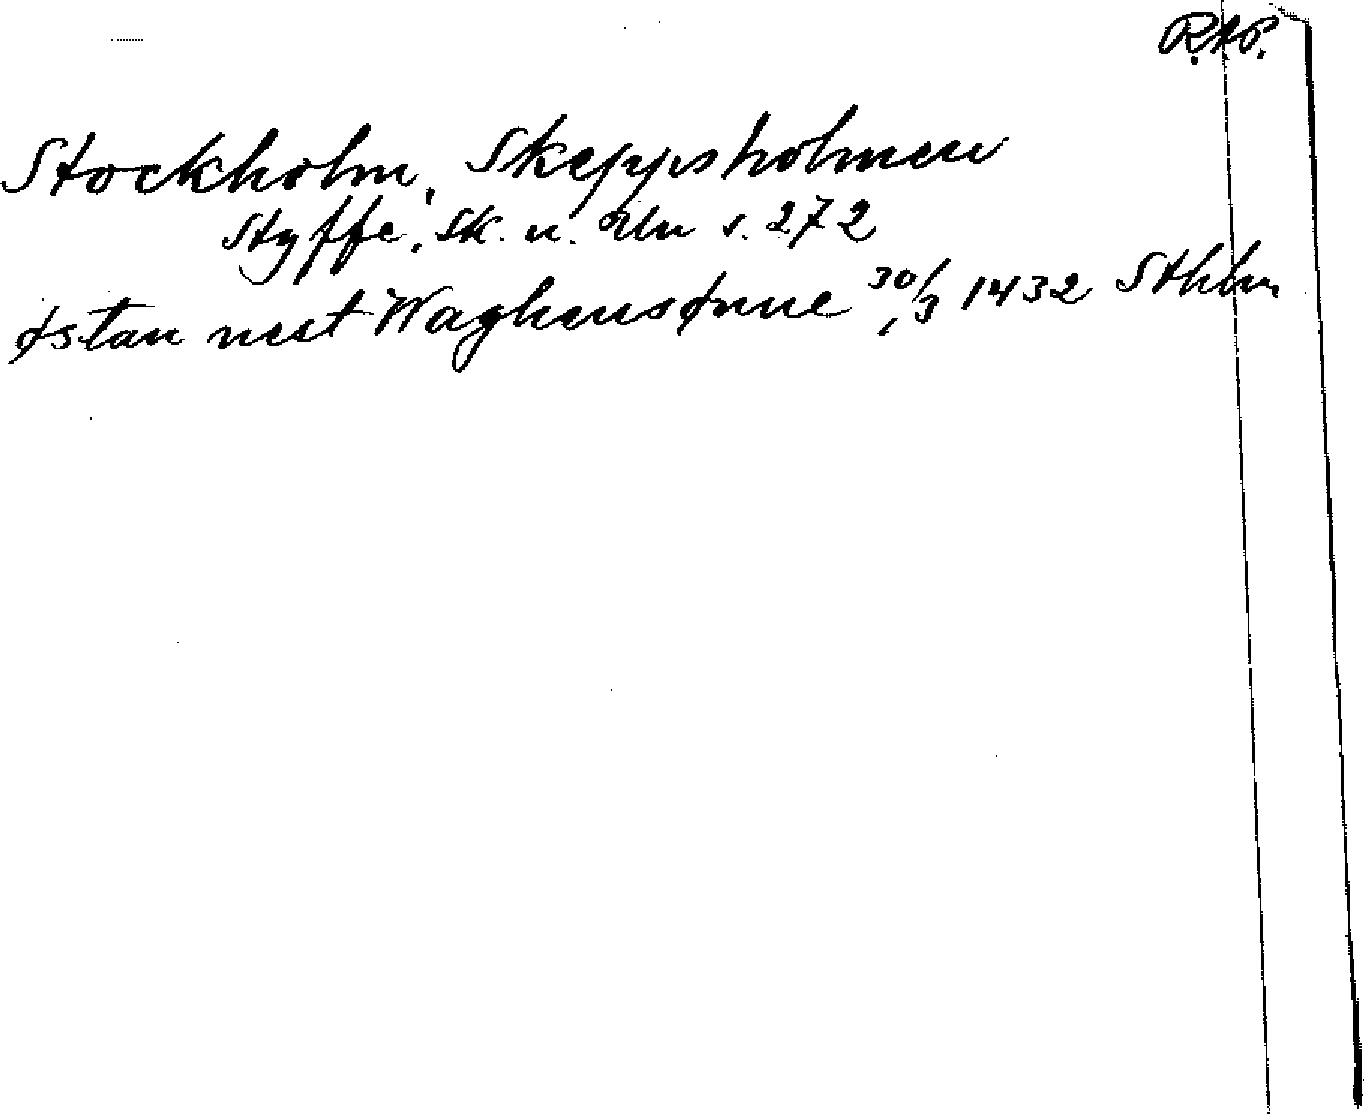 R.A.P.
Stockholm, Skeppsholmen
Styffe, Sk. u. Un s. 272
østan nest Waghensønne 30/3 1432 Sthlm